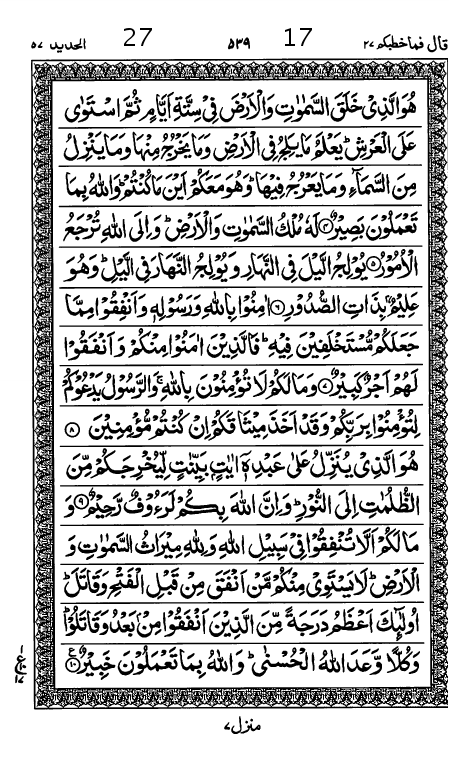 قال فما خطبکم ۲۷ 17 ۵۳۹ 27 الحدید ۵۷
هُوَ الَّذِیْ خَلَقَ السَّمٰوٰتِ وَالْاَرْضَ فِیْ سِتَّةِ اَیَّامٍ ثُمَّ اسْتَوٰی
عَلَی الْعَرْشِ ؕ یَعْلَمُ مَا یَلِجُ فِی الْاَرْضِ وَمَا یَخْرُجُ مِنْهَا وَمَا یَنْزِلُ
مِنَ السَّمَآءِ وَمَا یَعْرُجُ فِیْهَا ؕ وَهُوَ مَعَكُمْ اَیْنَ مَا كُنْتُمْ ؕ وَاللّٰهُ بِمَا
تَعْمَلُوْنَ بَصِیْرٌ ۝۴ لَهٗ مُلْكُ السَّمٰوٰتِ وَالْاَرْضِ ؕ وَاِلَی اللّٰهِ تُرْجَعُ
الْاُمُوْرُ ۝۵ یُوْلِجُ الَّیْلَ فِی النَّهَارِ وَیُوْلِجُ النَّهَارَ فِی الَّیْلِ ؕ وَهُوَ
عَلِیْمٌۢ بِذَاتِ الصُّدُوْرِ ۝۶ اٰمِنُوْا بِاللّٰهِ وَرَسُوْلِهٖ وَاَنْفِقُوْا مِمَّا
جَعَلَكُمْ مُّسْتَخْلَفِیْنَ فِیْهِ ؕ فَالَّذِیْنَ اٰمَنُوْا مِنْكُمْ وَاَنْفَقُوْا
لَهُمْ اَجْرٌ كَبِیْرٌ ۝۷ وَمَا لَكُمْ لَا تُؤْمِنُوْنَ بِاللّٰهِ ۚ وَالرَّسُوْلُ یَدْعُوْكُمْ
لِتُؤْمِنُوْا بِرَبِّكُمْ وَقَدْ اَخَذَ مِیْثَاقَكُمْ اِنْ كُنْتُمْ مُّؤْمِنِیْنَ ۝۸
هُوَ الَّذِیْ یُنَزِّلُ عَلٰی عَبْدِهٖۤ اٰیٰتٍۭ بَیِّنٰتٍ لِّیُخْرِجَكُمْ مِّنَ
الظُّلُمٰتِ اِلَی النُّوْرِ ؕ وَاِنَّ اللّٰهَ بِكُمْ لَرَءُوْفٌ رَّحِیْمٌ ۝۹ وَ
مَا لَكُمْ اَلَّا تُنْفِقُوْا فِیْ سَبِیْلِ اللّٰهِ وَلِلّٰهِ مِیْرَاثُ السَّمٰوٰتِ وَ
الْاَرْضِ ؕ لَا یَسْتَوِیْ مِنْكُمْ مَّنْ اَنْفَقَ مِنْ قَبْلِ الْفَتْحِ وَقَاتَلَ ؕ
اُولٰٓئِكَ اَعْظَمُ دَرَجَةً مِّنَ الَّذِیْنَ اَنْفَقُوْا مِنْۢ بَعْدُ وَقَاتَلُوْا ؕ
وَكُلًّا وَّعَدَ اللّٰهُ الْحُسْنٰی ؕ وَاللّٰهُ بِمَا تَعْمَلُوْنَ خَبِیْرٌ ۝۱۰ ع
منزل ۷